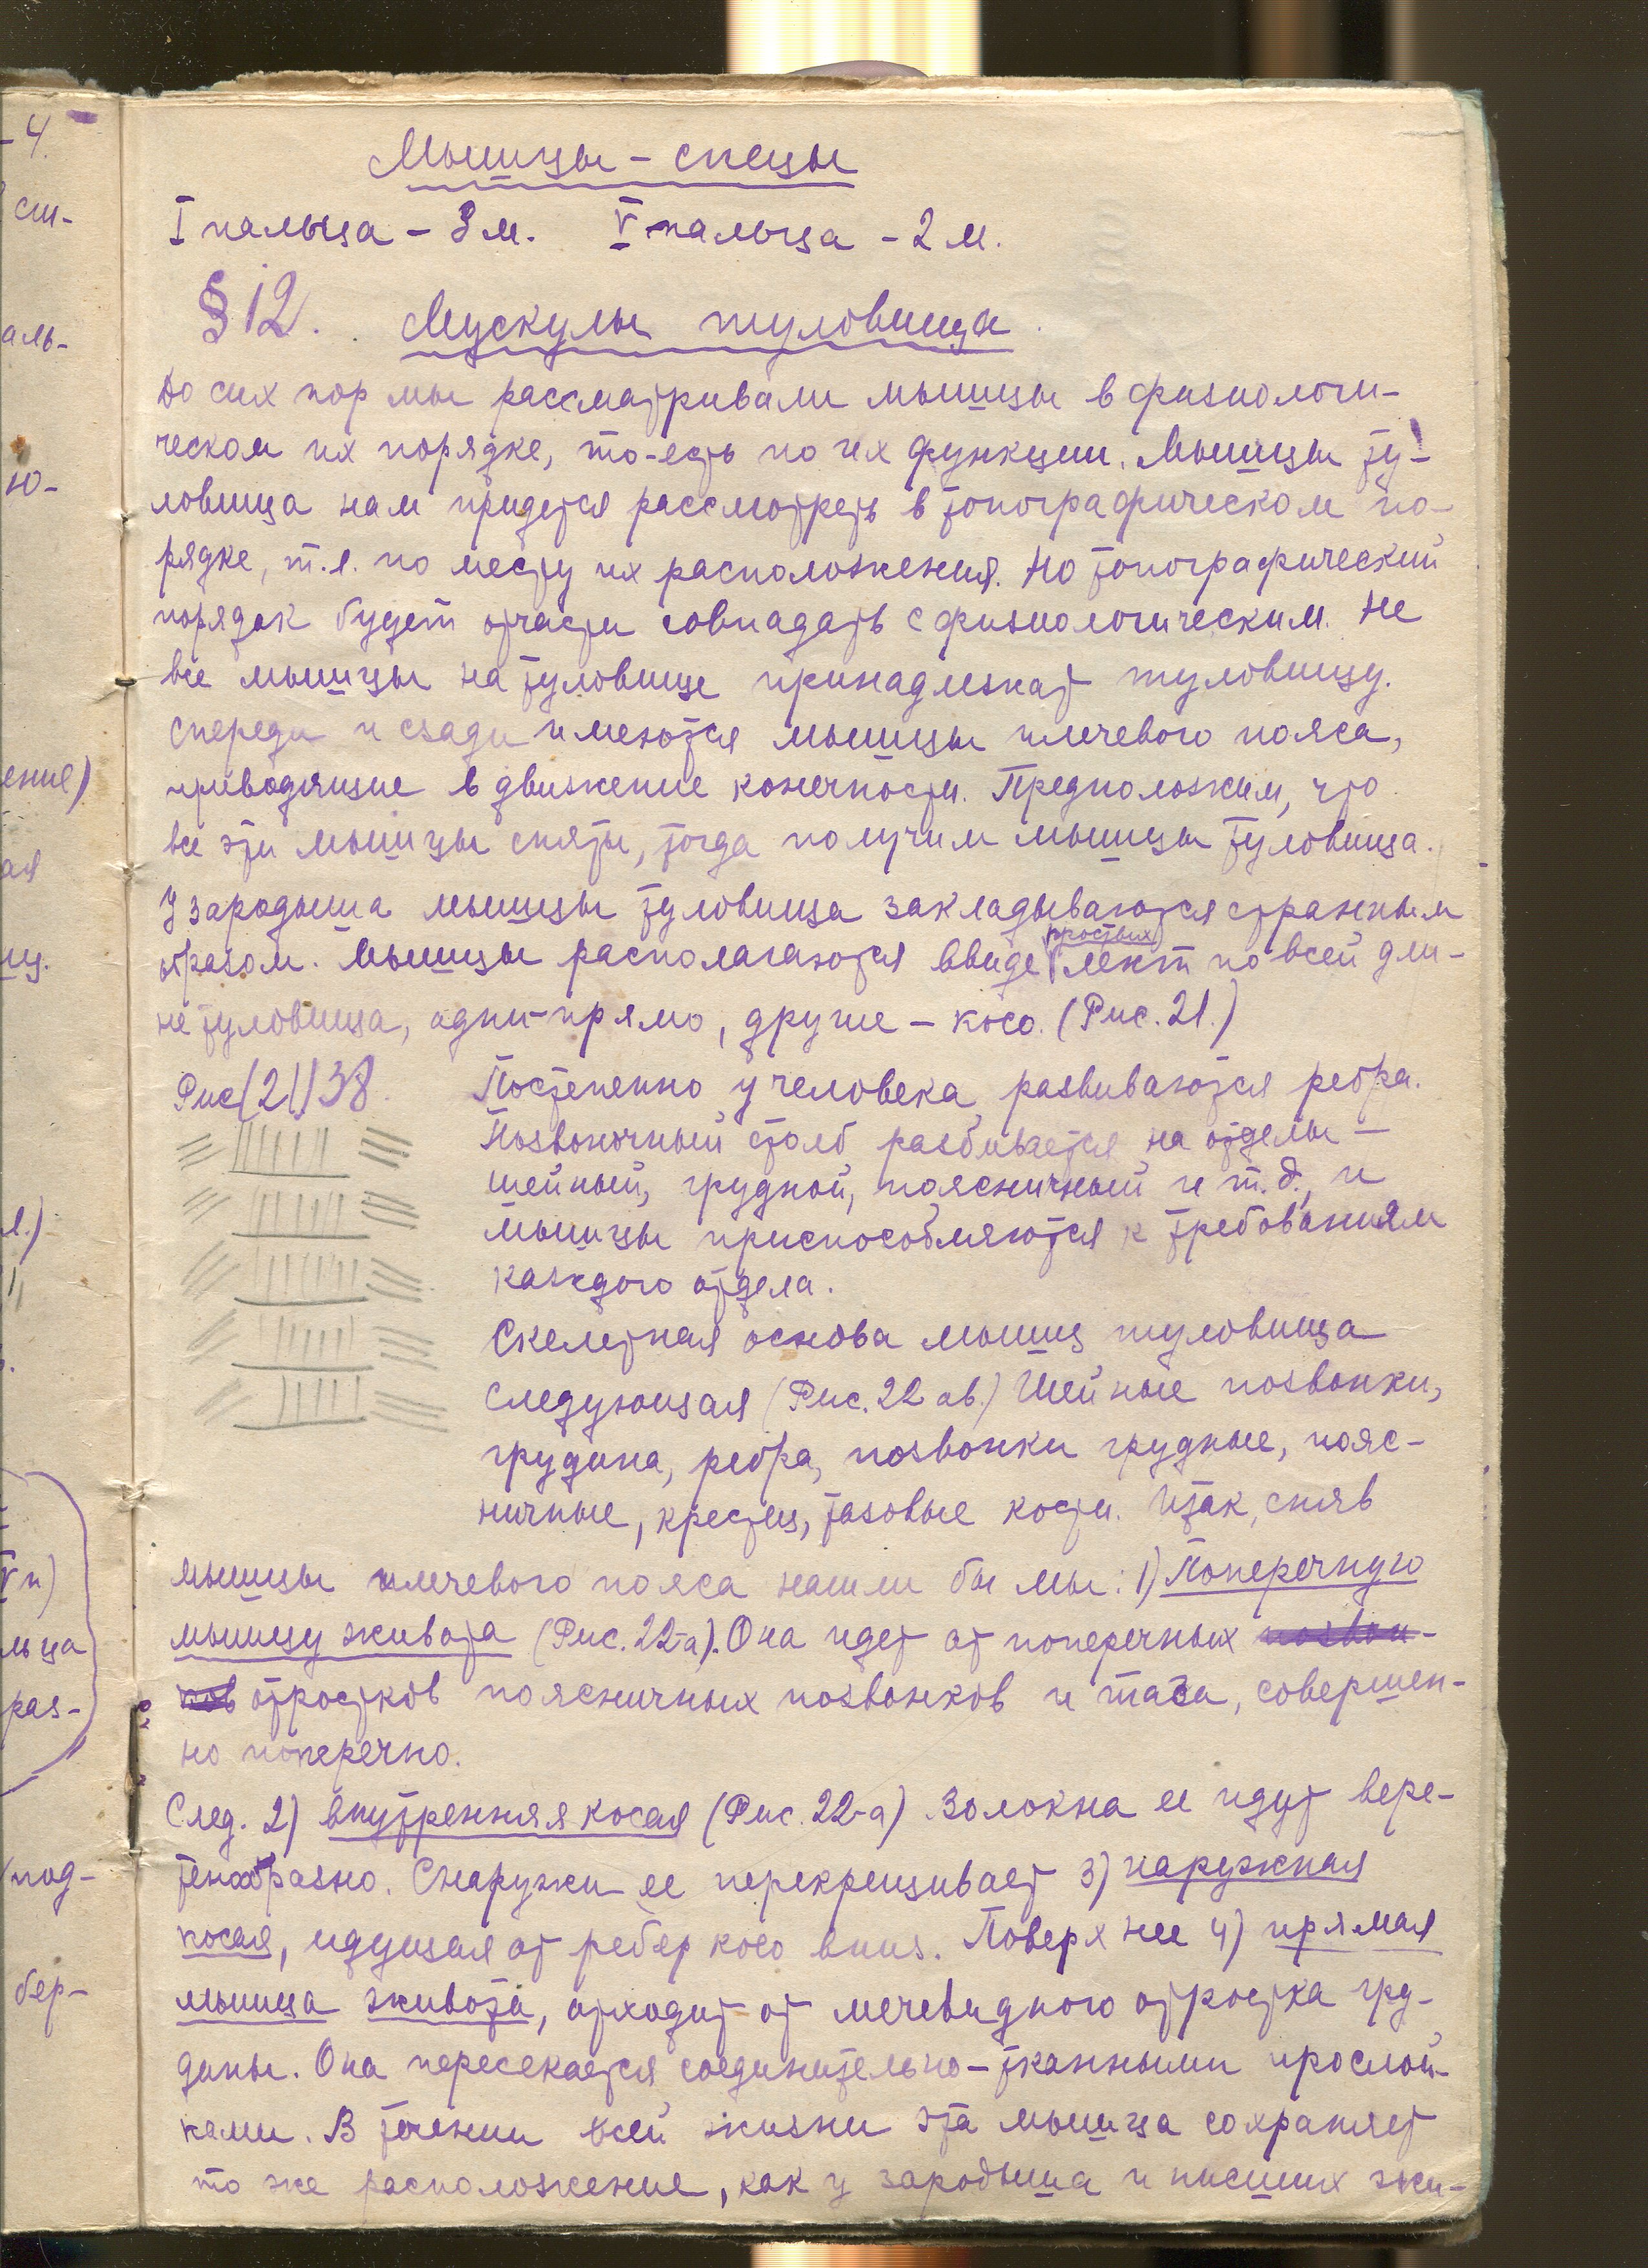 Мышцы - спецы
I пальца - 3 м. V пальца - 2 м.
§ 12. Мускулы туловища.
До сих пор мы рассматривали мышцы в физиологи-
ческом их порядке, то-есть по их функции. Мышцы ту-
ловища нам придется рассмотреть в топографическом по-
рядке, т.е. по месту их расположения. Но топографический
порядок будет отчасти совпадать с физиологическим. Не
все мышцы на туловище принадлежат туловищу.
Спереди и сзади имеются мышцы плечевого пояса,
приводящие в движение конечности. Предположим, что
все эти мышцы сняты, тогда получим мышцы туловища.
У зародыша мышцы туловища закладываются странным
образом. Мышцы располагаются ввиде простых лент по всей дли-
не туловища, одни - прямо, другие - косо. (Рис. 21.)
Рис (21) 38.
Постепенно у человека развиваются ребра.
Позвоночный столб разбивается на отделы -
шейный, грудной, поясничный и т.д., и
мышцы приспособляются к требованиям
каждого отдела.
Скелетная основа мышц туловища
следующая (Рис. 22 ав.) Шейные позвонки,
грудина, ребра, позвонки грудные, пояс-
ничные, крестец, тазовые кости. Итак, сняв
мышцы плечевого пояса нашли бы мы: 1) Поперечную
мышцу живота (Рис. 22-а). Она идет от поперечных позвон-
ков отростков поясничных позвонков и таза, совершен-
но поперечно.
След. 2) внутренняя косая (Рис. 22-а) Волокна ее идут вере-
тенообразно. Снаружи ее перекрещивает 3) наружная
косая, идущая от ребер косо вниз. Поверх нее 4) прямая
мышца живота, отходит от мечевидного отростка гру-
дины. Она пересекается соединительно-тканными прослой-
ками. В течении всей жизни эта мышца сохраняет
то же расположение, как у зародыша и низших жи-
-4.
сш-
аль-
ю-
ение)
ая
иц.
е.)
V п)
льца
раз-
под-
бер-